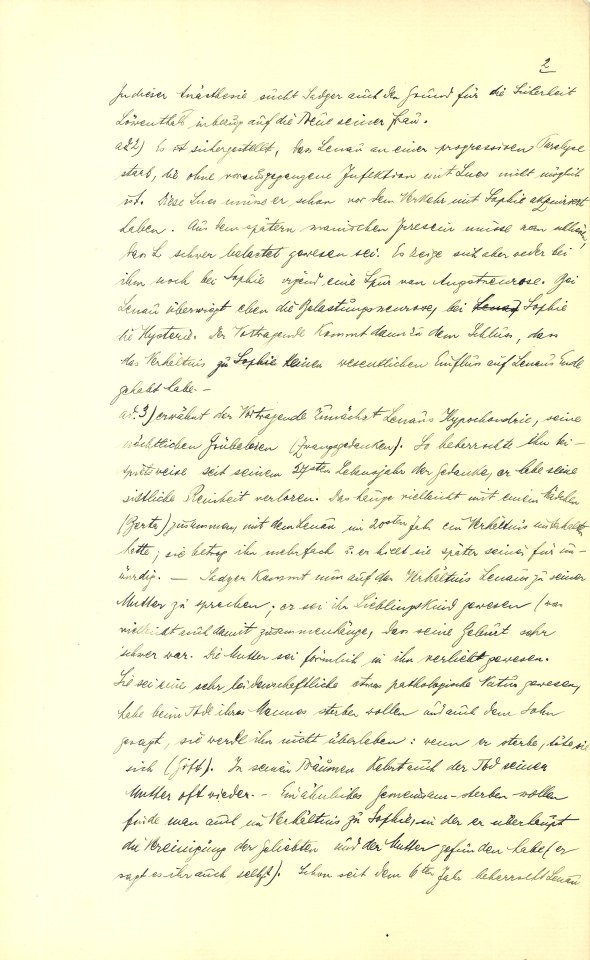 2
In dieser Anästhesie sucht Sadger auch den Grund für die Sicherheit
Löwenthals in bezug auf die Treue seiner Frau.
ad 2) Es ist sichergestellt, dass Lenau an einer progressiven Paralyse
starb, die ohne vorausgegangene Infektion mit Lues nicht möglich
ist. Diese Lues müsse er schon vor dem Verkehr mit Sophie akquiriert
haben. Aus dem spätern manischen Irresein müsse man schliessen,
dass L schwer belastet gewesen sei. Es zeige sich aber weder bei
ihm noch bei Sophie irgend eine Spur von Angstneurose. Bei
Lenau überwiegt eben die Belastungsneurose, bei Lenau Sophie
die Hysterie. Der Vortragende kommt dann zu dem Schluss, dass
das Verhältnis zu Sophie keinen wesentlichen Einfluss auf Lenaus Ende
gehabt habe. –
ad. 3) erwähnt der Vortragende zunächst Lenaus Hypochondrie, seine
nächtlichen Grübeleien (Zwangsgedanken). So beherrschte ihn bei-
spielsweise seit seinem 27sten Lebensjahr der Gedanke, er habe seine
sittliche Reinheit verloren. Das hänge vielleicht mit einem Mädchen
(Berta) zusammen, mit dem Lenau im 20sten Jahr ein Verhältnis unterhalten
hatte; sie betrog ihn mehrfach u. er hielt sie später seiner für un-
würdig. — Sadger kommt nun auf das Verhältnis Lenaus zu seiner
Mutter zu sprechen; er sei ihr Lieblingskind gewesen (was
vielleicht auch damit zusammenhänge, dass seine Geburt sehr
schwer war. Die Mutter sei förmlich in ihn verliebt gewesen.
Sie sei eine sehr leidenschaftliche etwas pathologische Natur gewesen,
habe beim Tode ihres Mannes sterben wollen und auch dem Sohn
gesagt, sie werde ihn nicht überleben: wenn er sterbe, töte sie
sich (Gift). In seinen Träumen kehrt auch der Tod seiner
Mutter oft wieder. – Ein ähnliches Gemeinsam-sterben-wollen
finde man auch im Verhältnis zu Sophie, in der er überhaupt
die Vereinigung der Geliebten und der Mutter gefunden habe (er
sagt es ihr auch selbst). Schon seit dem 6ten Jahr beherrscht Lenau